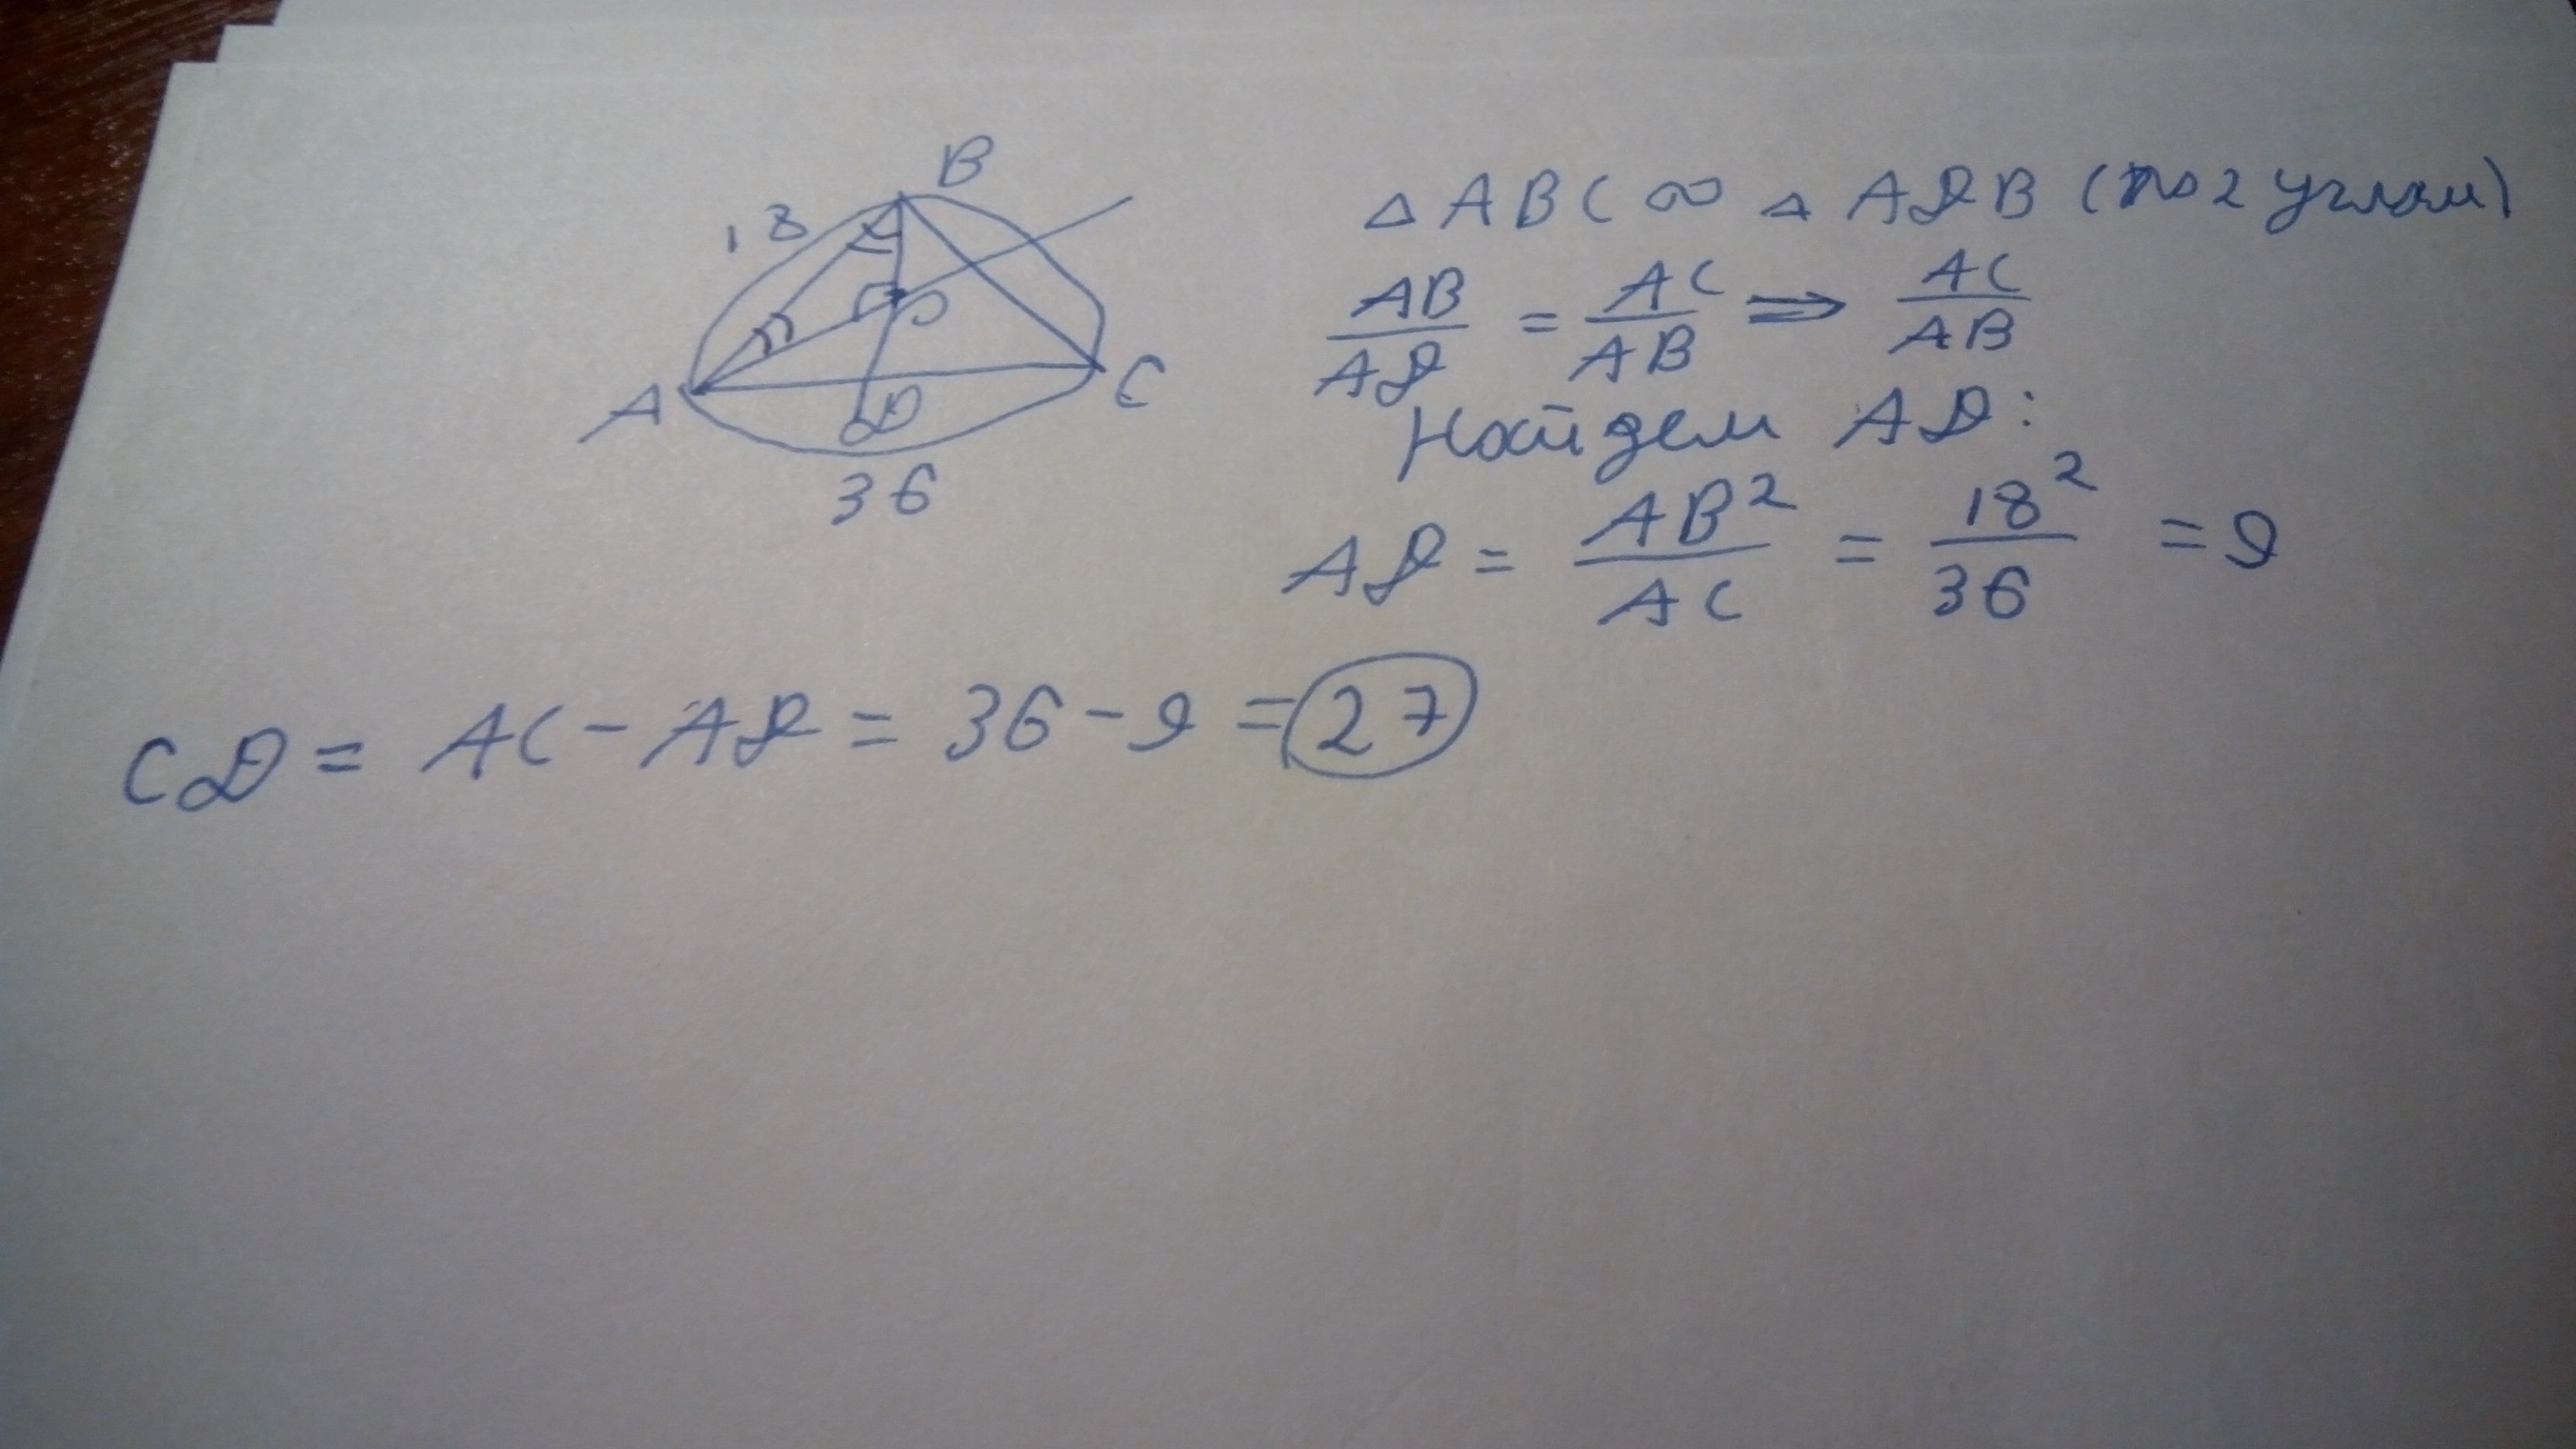 B
18
O
A
C
D
36
△ABC ∞ △ADB (по 2 углам)
AB/AD = AC/AB ⇒ AC/AB
Найдем AD:
AD = AB²/AC = 18²/36 = 9
CD = AC - AD = 36 - 9 = 27